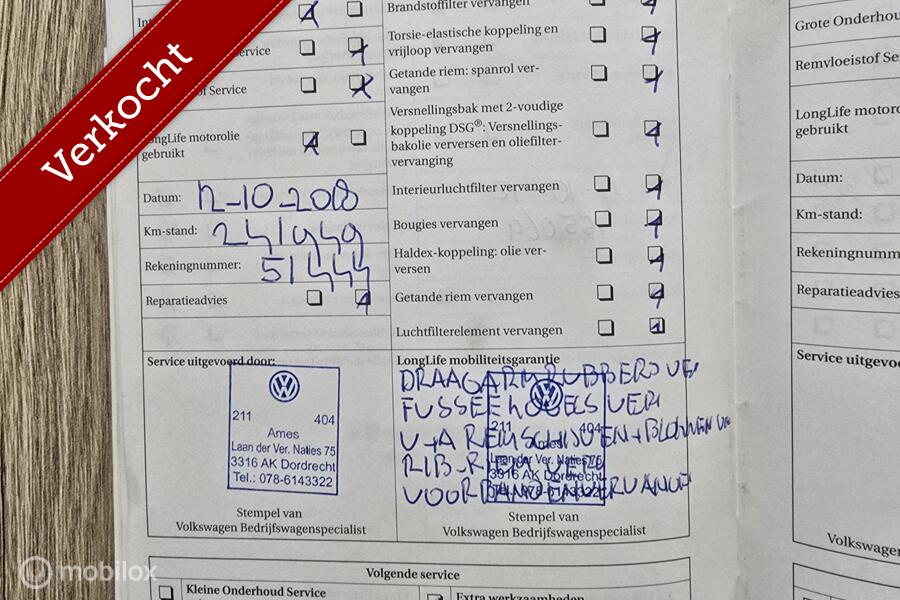 Verkocht
Brandstoffilter vervangen
Torsie-elastische koppeling en
vrijloop vervangen
Service
Getande riem: spanrol ver-
vangen
Service
Versnellingsbak met 2-voudige
koppeling DSG®: Versnellings-
bakolie verversen en oliefilter-
vervanging
LongLife motorolie
gebruikt
Interieurluchtfilter vervangen
Datum: 12-10-2018
Bougies vervangen
Km-stand: 241949
Haldex-koppeling: olie ver-
versen
Rekeningnummer: 51444
Getande riem vervangen
Reparatieadvies
Luchtfilterelement vervangen
Service uitgevoerd door:
211 404
Ames
Laan der Ver. Naties 75
3316 AK Dordrecht
Tel.: 078-6143322
Stempel van
Volkswagen Bedrijfswagenspecialist
LongLife mobiliteitsgarantie
DRAAGARMRUBBERS VE
FUSSEEKOGELS VER
V+A REMSCHIJVEN+BLOKKEN
RIB-RIEM
VOORBANDEN VERVANGE
211 404
Ames
Laan der Ver. Naties 75
3316 AK Dordrecht
Tel.: 078-6143322
Stempel van
Volkswagen Bedrijfswagenspecialist
Volgende service
Kleine Onderhoud Service
Extra werkzaamheden
Grote Onderhou
Remvloeistof Se
LongLife motoro
gebruikt
Datum:
Km-stand:
Rekeningnumm
Reparatieadvies
Service uitgevoe
Volkswagen
mobilox